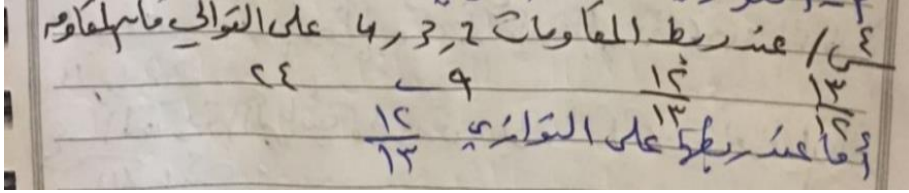 س٤/ عند ربط المقاومات 2 , 3 , 4 على التوالي فإن المقاومة
١٣/١٢ ١٢/١٣ ٩ ٢٤
أما عند ربطها على التوازي ١٢/١٣